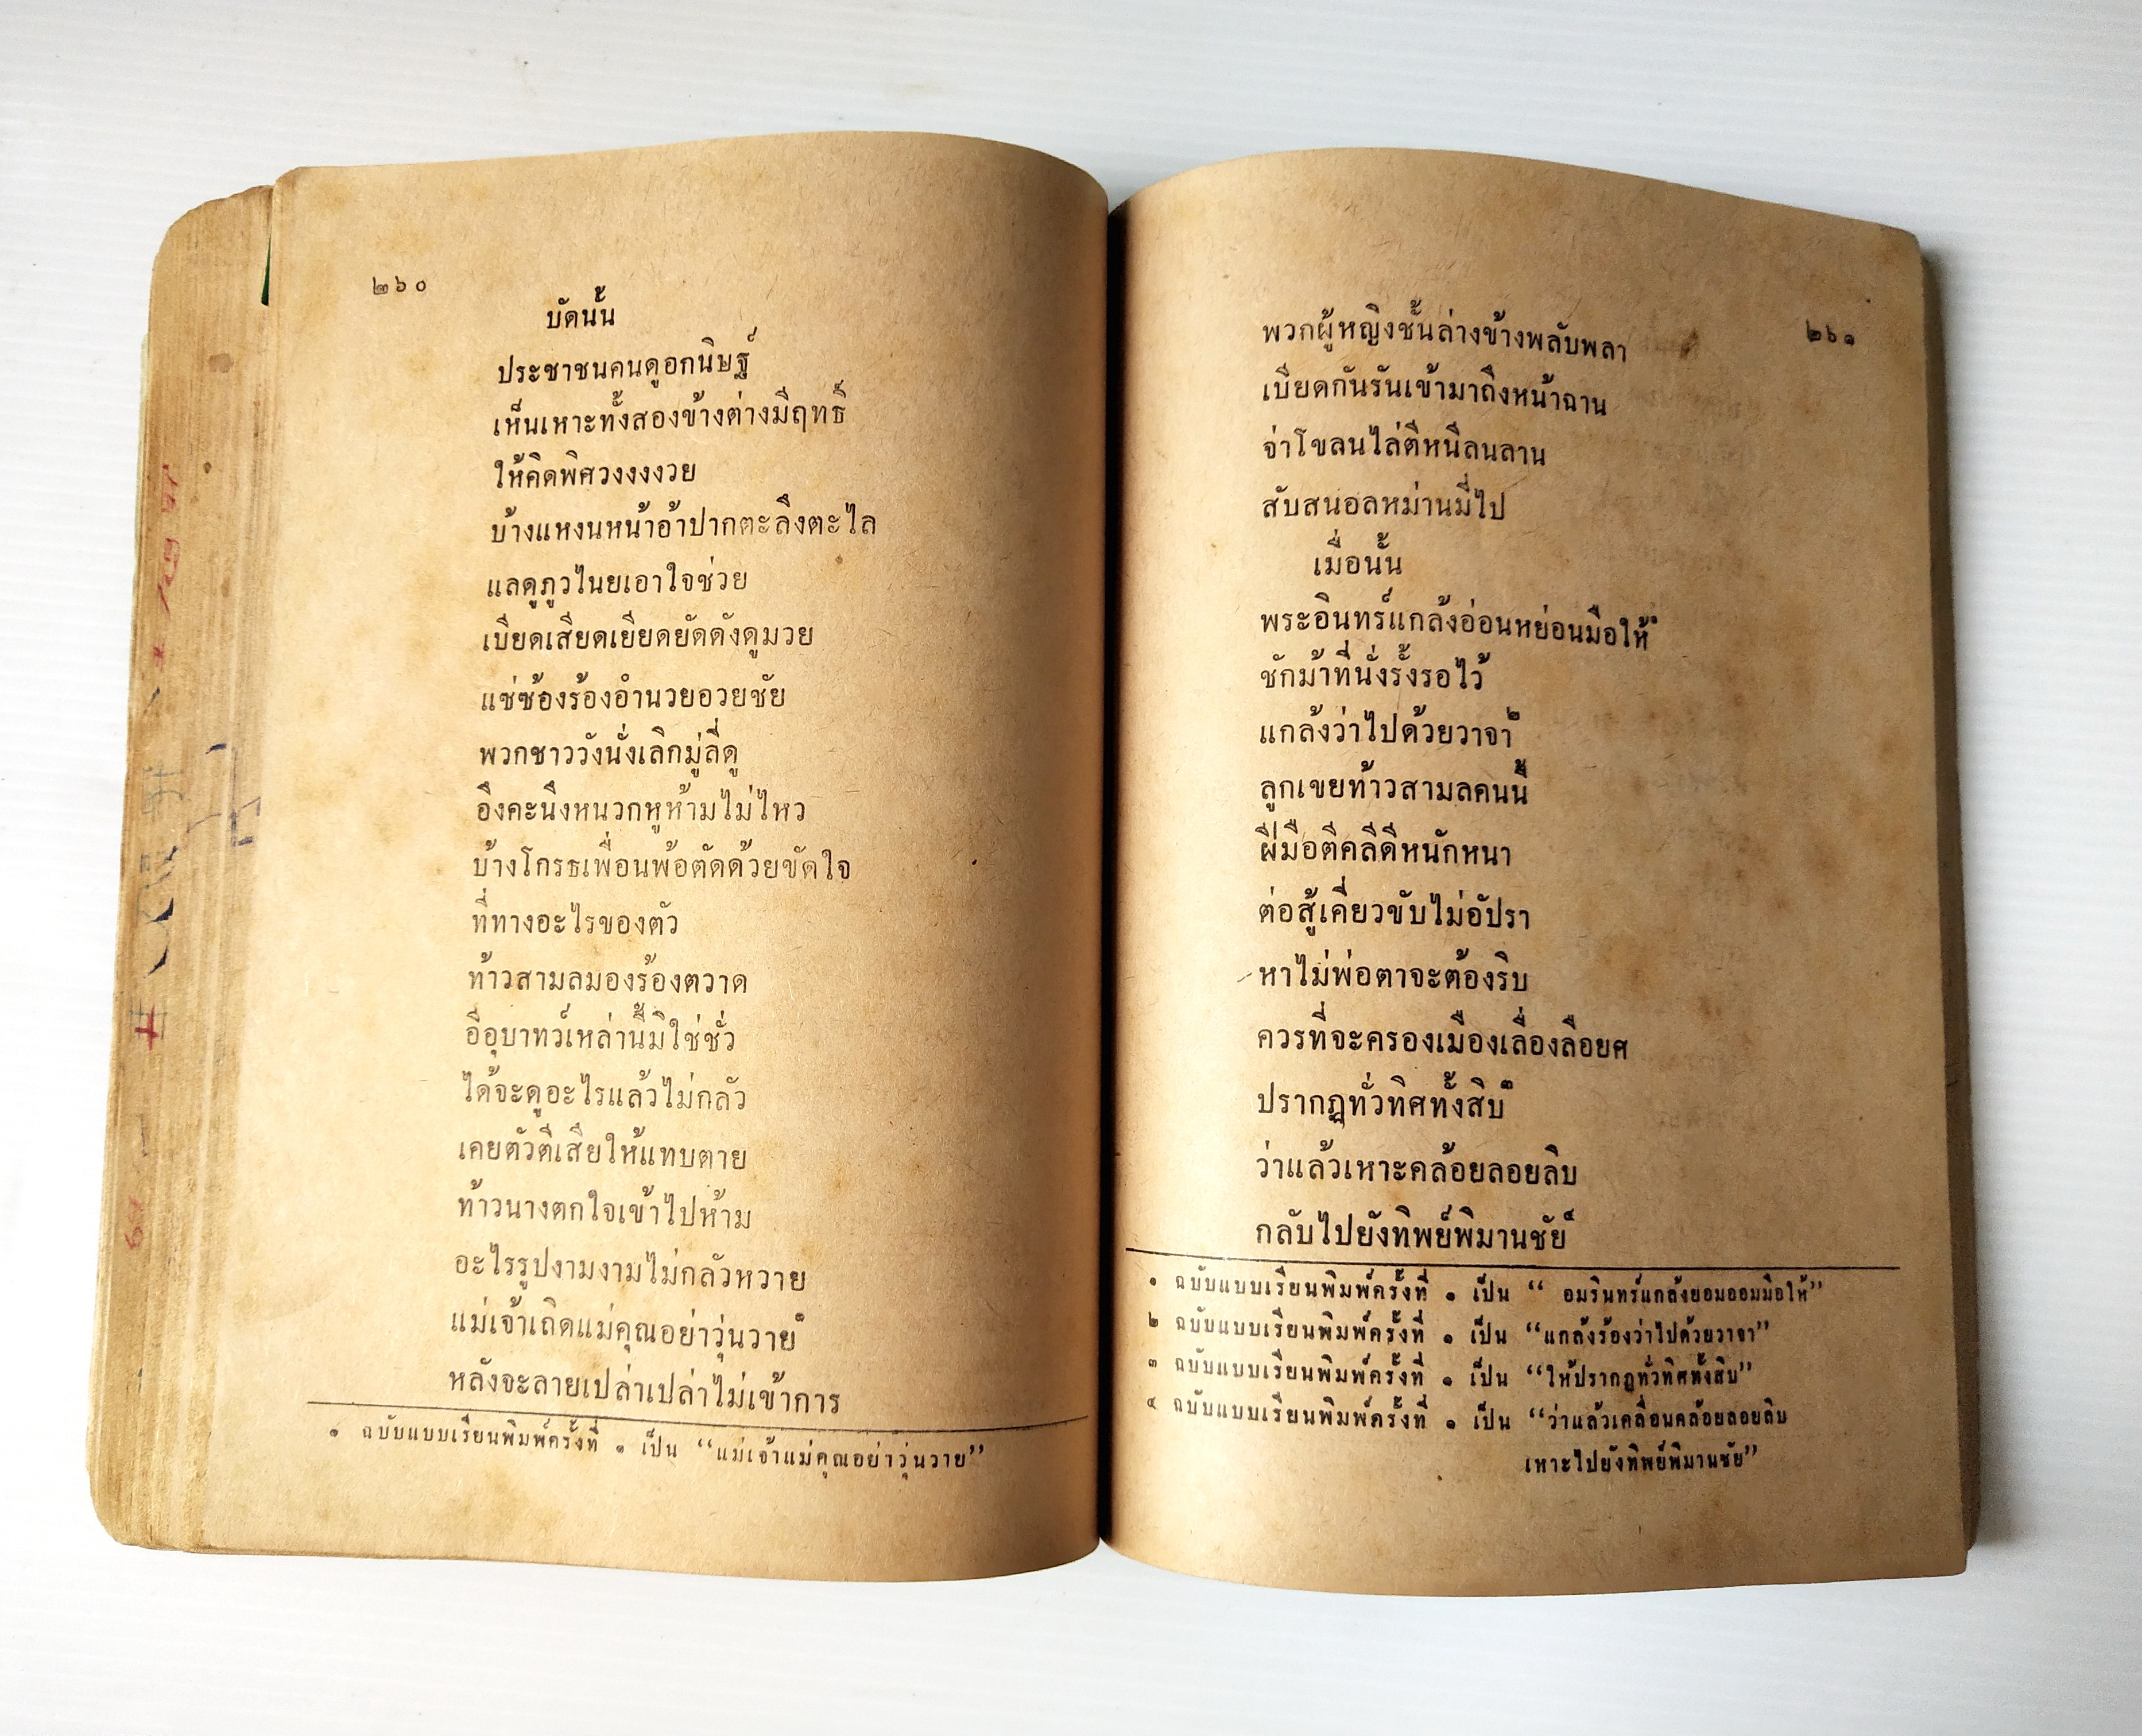 ๒๖๐
บัดนั้น
ประชาชนคนดูอกนิษฐ์
เห็นเหาะทั้งสองข้างต่างมีฤทธิ์
ให้คิดพิศวงงงงวย
บ้างแหงนหน้าอ้าปากตะลึงตะไล
แลดูภูวไนยเอาใจช่วย
เบียดเสียดเยียดยัดดังดูมวย
แซ่ซ้องร้องอำนวยอวยชัย
พวกชาววังนั่งเลิกมู่ลี่ดู
อึงคะนึงหนวกหูห้ามไม่ไหว
บ้างโกรธเพื่อนพ้อตัดด้วยขัดใจ
ที่ทางอะไรของตัว
ท้าวสามลมองร้องตวาด
อีอุบาทว์เหล่านี้มิใช่ชั่ว
ได้จะดูอะไรแล้วไม่กลัว
เคยตัวตีเสียให้แทบตาย
ท้าวนางตกใจเข้าไปห้าม
อะไรรูปงามงามไม่กลัวหวาย
แม่เจ้าเถิดแม่คุณอย่าวุ่นวาย๑
หลังจะลายเปล่าเปล่าไม่เข้าการ
๑ ฉบับแบบเรียนพิมพ์ครั้งที่ ๑ เป็น “แม่เจ้าแม่คุณอย่าวุ่นวาย”
๒๖๑
พวกผู้หญิงชั้นล่างข้างพลับพลา
เบียดกันรันเข้ามาถึงหน้าฉาน
จ่าโขลนไล่ตีหนีลนลาน
สับสนอลหม่านมี่ไป
เมื่อนั้น
พระอินทร์แกล้งอ่อนหย่อนมือให้๑
ชักม้าที่นั่งรั้งรอไว้
แกล้งว่าไปด้วยวาจา๒
ลูกเขยท้าวสามลคนนี้
ฝีมือตีคลีดีหนักหนา
ต่อสู้เคี่ยวขับไม่อัปรา
หาไม่พ่อตาจะต้องริบ
ควรที่จะครองเมืองเลื่องลือยศ
ปรากฏทั่วทิศทั้งสิบ๓
ว่าแล้วเหาะคล้อยลอยลิบ
กลับไปยังทิพย์พิมานชัย๔
๑ ฉบับแบบเรียนพิมพ์ครั้งที่ ๑ เป็น “ อมรินทร์แกล้งยอมออมมือให้”
๒ ฉบับแบบเรียนพิมพ์ครั้งที่ ๑ เป็น “แกล้งร้องว่าไปด้วยวาจา”
๓ ฉบับแบบเรียนพิมพ์ครั้งที่ ๑ เป็น “ให้ปรากฏทั่วทิศทั้งสิบ”
๔ ฉบับแบบเรียนพิมพ์ครั้งที่ ๑ เป็น “ว่าแล้วเคลื่อนคล้อยลอยลิบ
เหาะไปยังทิพย์พิมานชัย”